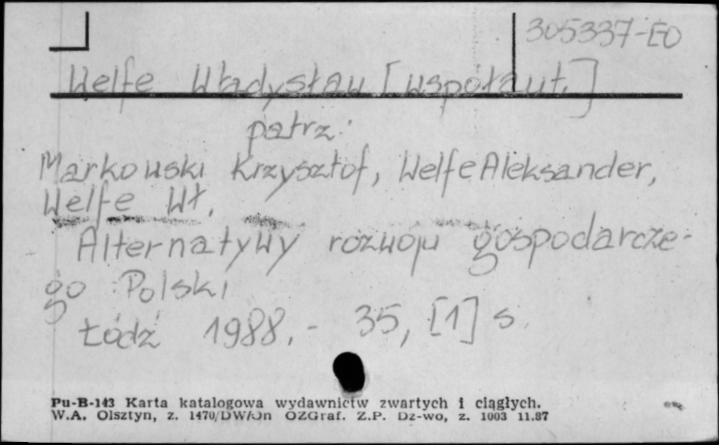 305337-EO
Welfe Władysław [współaut.]
patrz:
Markowski Krzysztof, Welfe Aleksander,
Welfe Wł.
Alternatywy rozwoju gospodarcze-
go Polski
Łódź 1988.- 35, [1] s.
Pu-B-143 Karta katalogowa wydawnictw zwartych i ciągłych.
W.A. Olsztyn, z. 1470/DW/Jn OZGraf. Z.P. Dz-wo, z. 1003 11.87